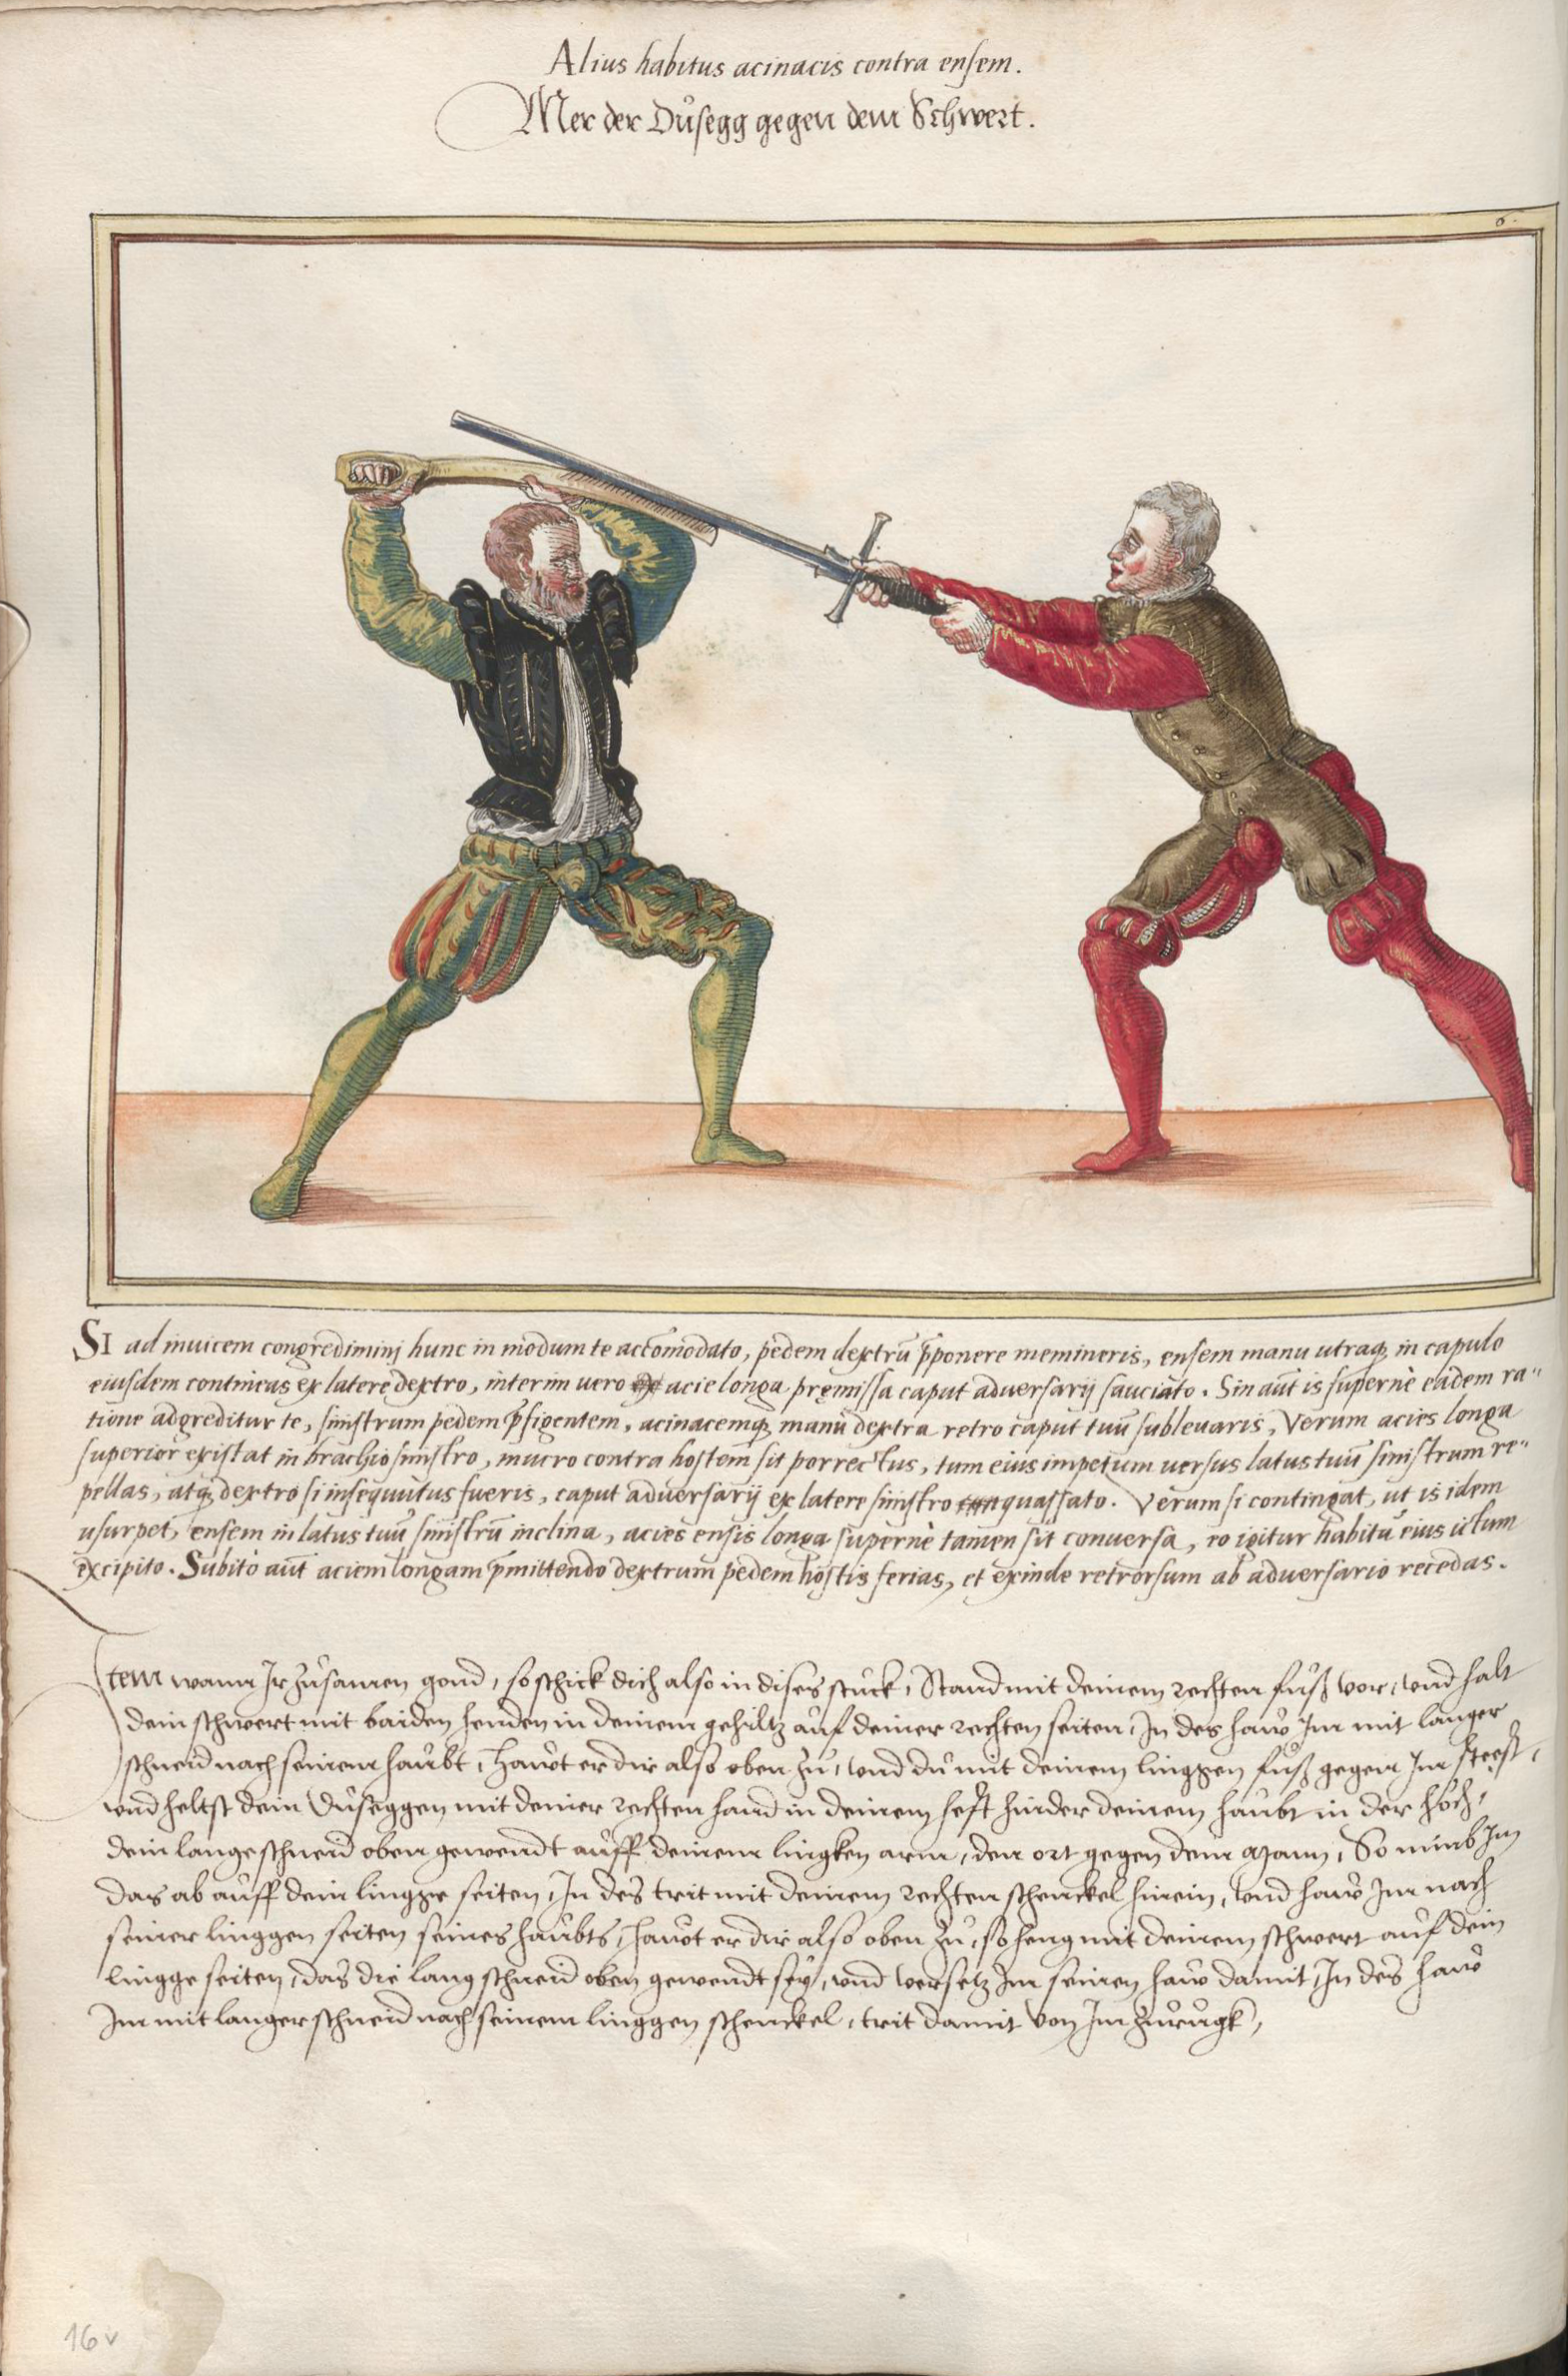 Alius habitus acinacis contra ensem.
Mer der Důsegg gegen dem Schwert.
6.
SI ad inuicem congrediminj hunc in modum te accom̄odato, pedem dextrū p̄ponere memineris, ensem manu utraq; in capulo
eiusdem contineas ex latere dextro, interim uero acie longa pręmissa caput aduersarij sauciato. Sin aūt is supernè eadem ra"
tione adgreditur te, sinistrum pedem p̄figentem, acinacemq; manu dextra retro caput tuū subleuaris, Verum acies longa
superior existat in brachio sinistro, mucro contra hostem sit porrectus, tum eius impetum uersus latus tuū sinistrum re"
pellas, atq; dextro si insequutus fueris, caput aduersarij ex latere sinistro quassato. Verum si contingat, ut is idem
usurpet, ensem in latus tuū sinistrū inclina, acies ensis longa supernè tamen sit conuersa, eo igitur habitu eius ictum
excipito. Subitò aūt aciem longam p̄mittendo dextrum pedem hostis ferias, et exinde retrorsum ab aduersario recedas.
Item wann Ir zůsamen gond, so schick dich also in dises stuck, Stand mit deinem rechten fůß vor, vnd halt
dein schwert mit baiden henden in deinem gehiltz auf deiner rechten seiten, In des haw Im mit langer
schneid nach seinem haubt, Hawt er dir also oben zů, vnd du mit deinem linggen fůß gegen Im steest,
vnd heltst dein Důseggen mit deiner rechten hand in deinem heft hinder deinem haubt in der höch,
dein lange schneid oben gewendt auff deinem lingken arm, den ort gegen dem Mann, So nimb Im
das ab auff dein lingge seiten, In des trit mit deinem rechten schenckel hinein, vnd haw Im nach
seiner linggen seiten seines haubts, Hawt er dir also oben zů, so heng mit deinem schwert auf dein
lingge seiten, das die lang schneid oben gewendt sey, vnd versetz Im seinen haw damit, In des haw
Im mit langer schneid nach seinem linggen schenckel, trit damit von Im zůrůgk,
16v